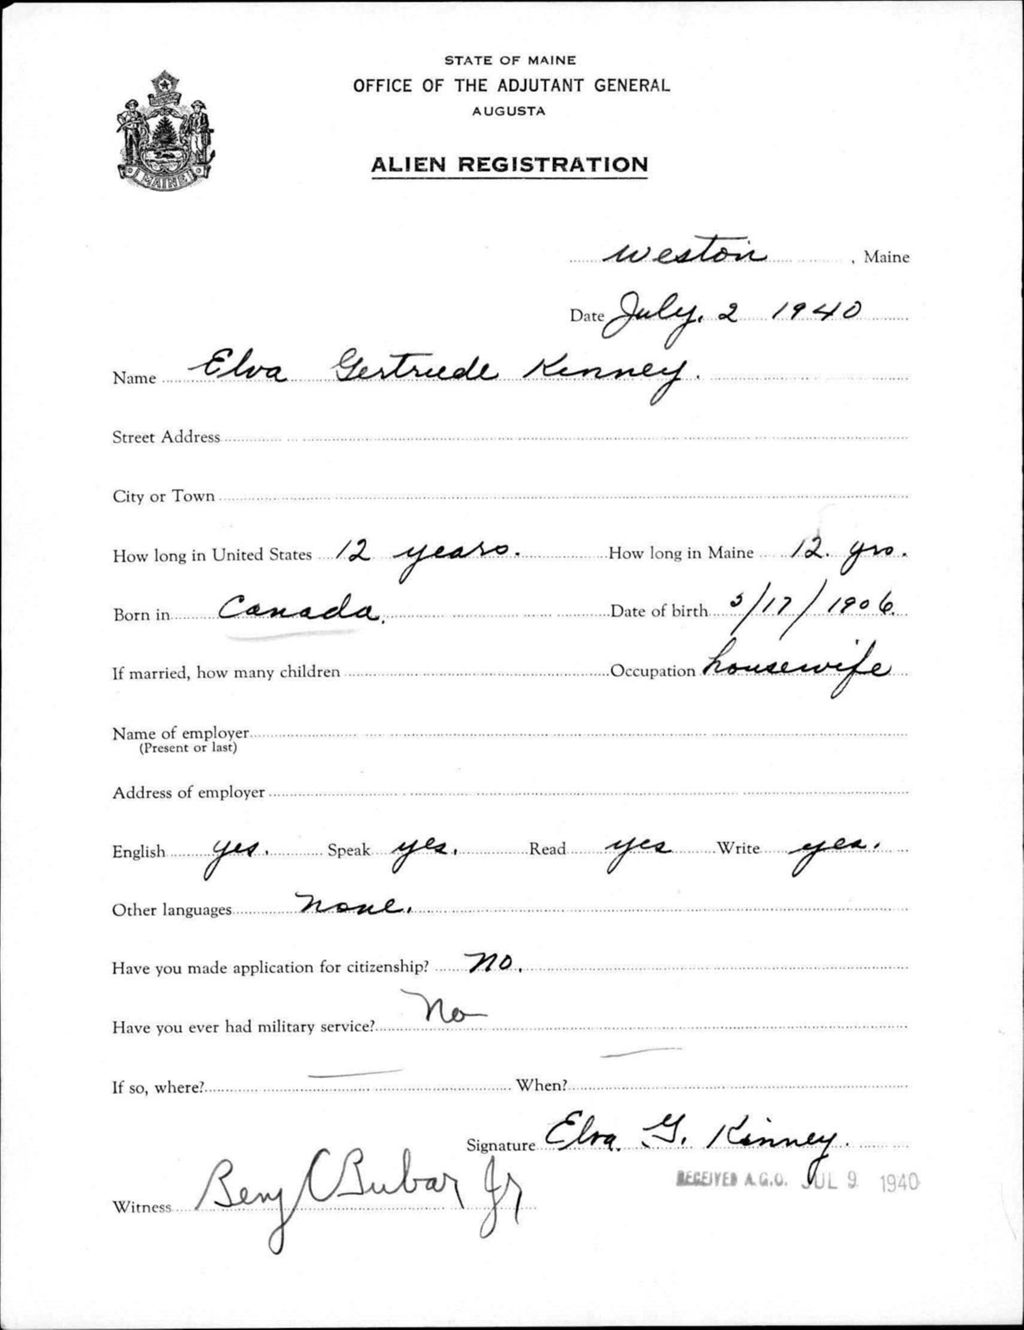 STATE OF MAINE
OFFICE OF THE ADJUTANT GENERAL
AUGUSTA
ALIEN REGISTRATION
MAINE
Weston, Maine
Date July, 2 1940
Name Elva Gertrude Kenney.
Street Address
City or Town
How long in United States 12 years. How long in Maine 12. yrs.
Born in Canada. Date of birth 5/17/1906
If married, how many children Occupation housewife
Name of employer
(Present or last)
Address of employer
English yes. Speak yes. Read yes Write yes.
Other languages None.
Have you made application for citizenship? No.
Have you ever had military service? No
If so, where? — When? —
Signature Elva. G. Kinney.
RECEIVED A.G.O. JUL 9 1940
Witness Benj C Bubar Jr